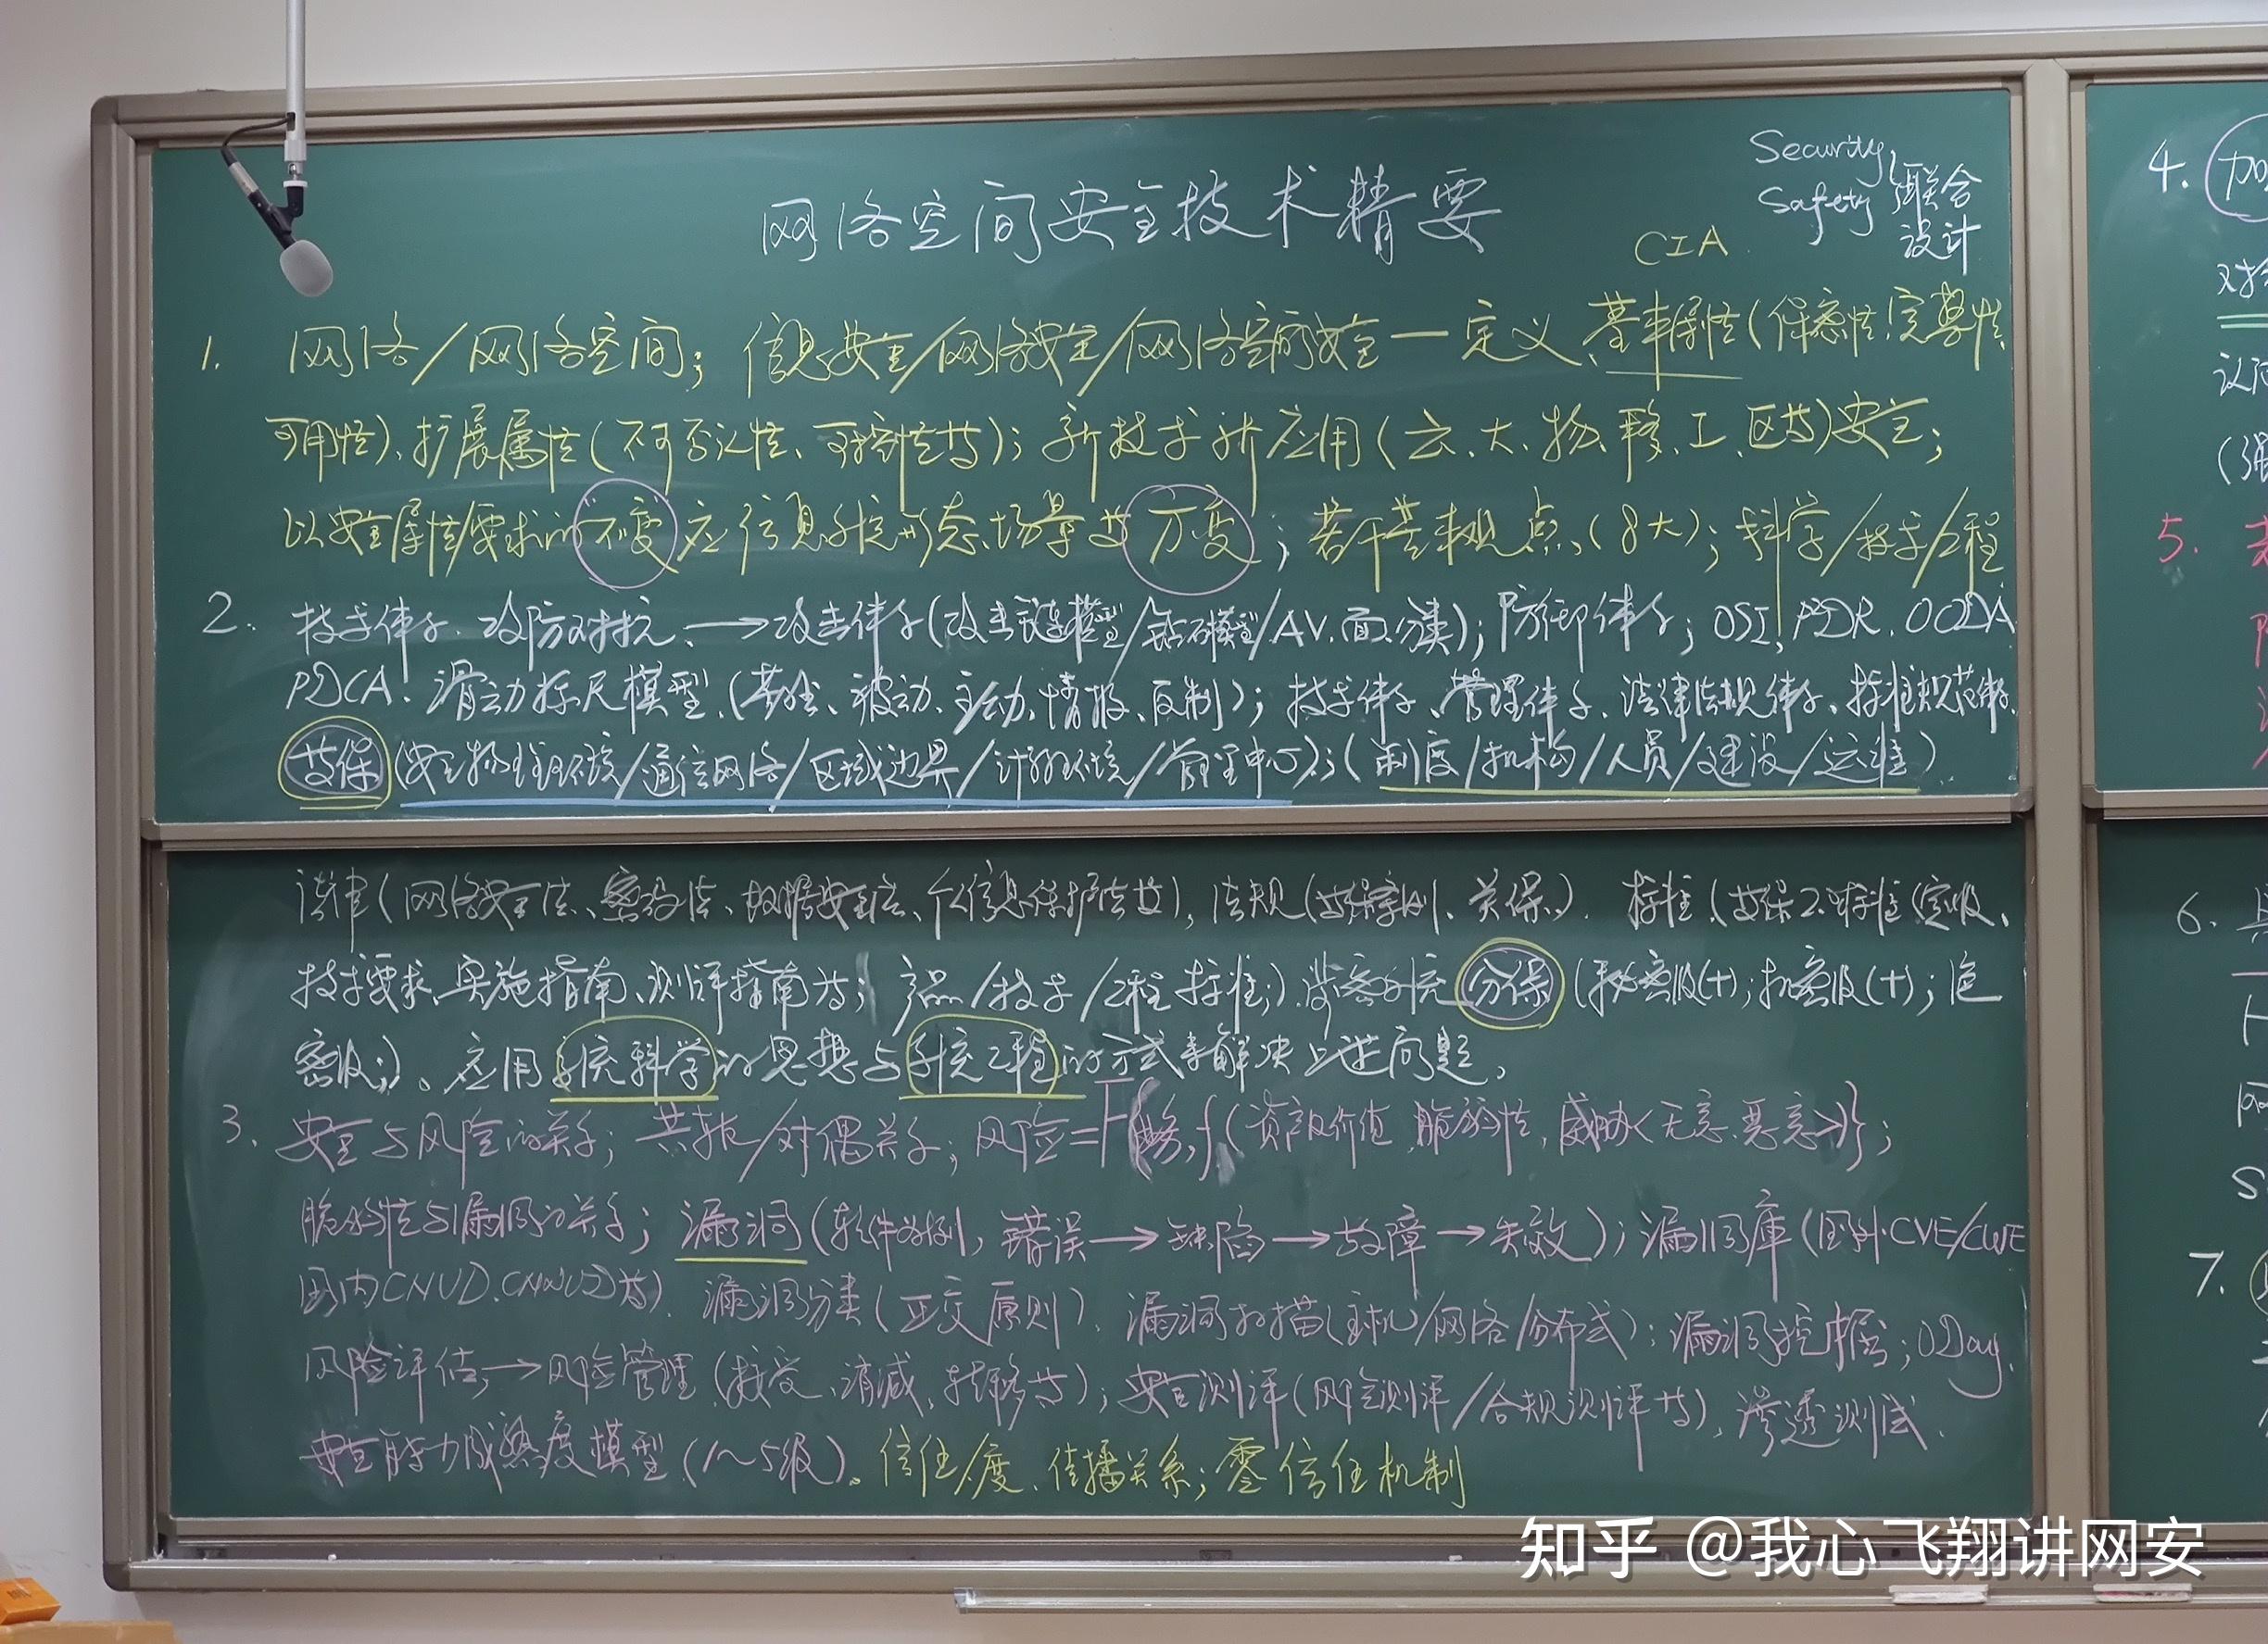 网络空间安全技术精要
Security
Safety
联合
设计
CIA
1. 网络/网络空间; 信息安全/网络安全/网络空间安全—定义、基本属性(保密性、完整性、
可用性)、扩展属性(不可否认性、可控性等); 新技术新应用(云、大、物、移、工、区等)安全;
以安全属性/要求的不变应信息系统形态、场景等万变; 若干基本观点(8大); 科学/技术/工程
2. 技术体系、攻防对抗、→攻击体系(攻击链模型/钻石模型/AV、面、分类); 防御体系; OSI、PDR、OODA
PDCA、滑动标尺模型、(基础、被动、主动、情报、反制); 技术体系、管理体系、法律法规体系、标准规范体系、
等保(安全物理环境/通信网络/区域边界/计算环境/管理中心); (制度/机构/人员/建设/运维)
法律(网络安全法、密码法、数据安全法、个人信息保护法等), 法规(等保条例、关保、) 标准、(等保2.0标准(定级、
技术要求、实施指南、测评指南等; 产品/技术/工程标准;)、涉密系统分保(秘密级(+); 机密级(+); 绝
密级;)、应用系统科学的思想与系统工程的方式来解决上述问题。
3. 安全与风险的关系; 共轭/对偶关系; 风险=F{ f(资产价值, 脆弱性, 威胁<无意、恶意>)};
脆弱性与漏洞的关系; 漏洞(软件为例, 错误→缺陷→故障→失效); 漏洞库(国外CVE/CWE
国内CNVD、CNNVD等)、漏洞分类(正交原则)、漏洞扫描(主机/网络/分布式); 漏洞挖掘; 0Day、
风险评估→风险管理(接受、消减、转移等); 安全测评(风险测评/合规测评等)、渗透测试、
安全能力成熟度模型(1~5级)。信任/度、传播关系; 零信任机制
4. 加
对
认
(强
5.
6.
7.
知乎 @我心飞翔讲网安